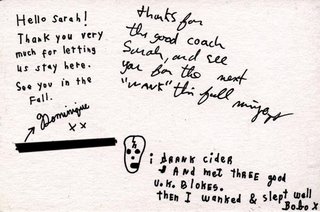 Hello Sarah!
Thank you very
much for letting
us stay here.
See you in the
Fall.
Dominique
x x
thanks for
the good coach
Sarah, and see
you for the next
"wank" this fall
i drank cider
AND met three good
U.K. BLOKES.
then I wanked & slept well
Bobo x